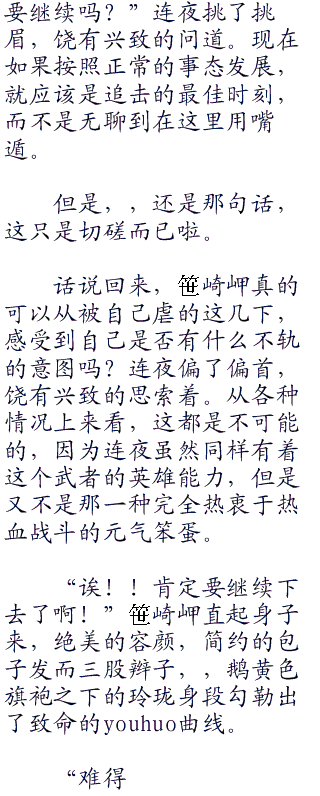 要继续吗？”连夜挑了挑
眉，饶有兴致的问道。现在
如果按照正常的事态发展，
就应该是追击的最佳时刻，
而不是无聊到在这里用嘴
遁。
但是，，还是那句话，
这只是切磋而已啦。
话说回来，笹崎岬真的
可以从被自己虐的这几下，
感受到自己是否有什么不轨
的意图吗？连夜偏了偏首，
饶有兴致的思索着。从各种
情况上来看，这都是不可能
的，因为连夜虽然同样有着
这个武者的英雄能力，但是
又不是那一种完全热衷于热
血战斗的元气笨蛋。
“诶！！肯定要继续下
去了啊！”笹崎岬直起身子
来，绝美的容颜，简约的包
子发而三股辫子，，鹅黄色
旗袍之下的玲珑身段勾勒出
了致命的youhuo曲线。
“难得